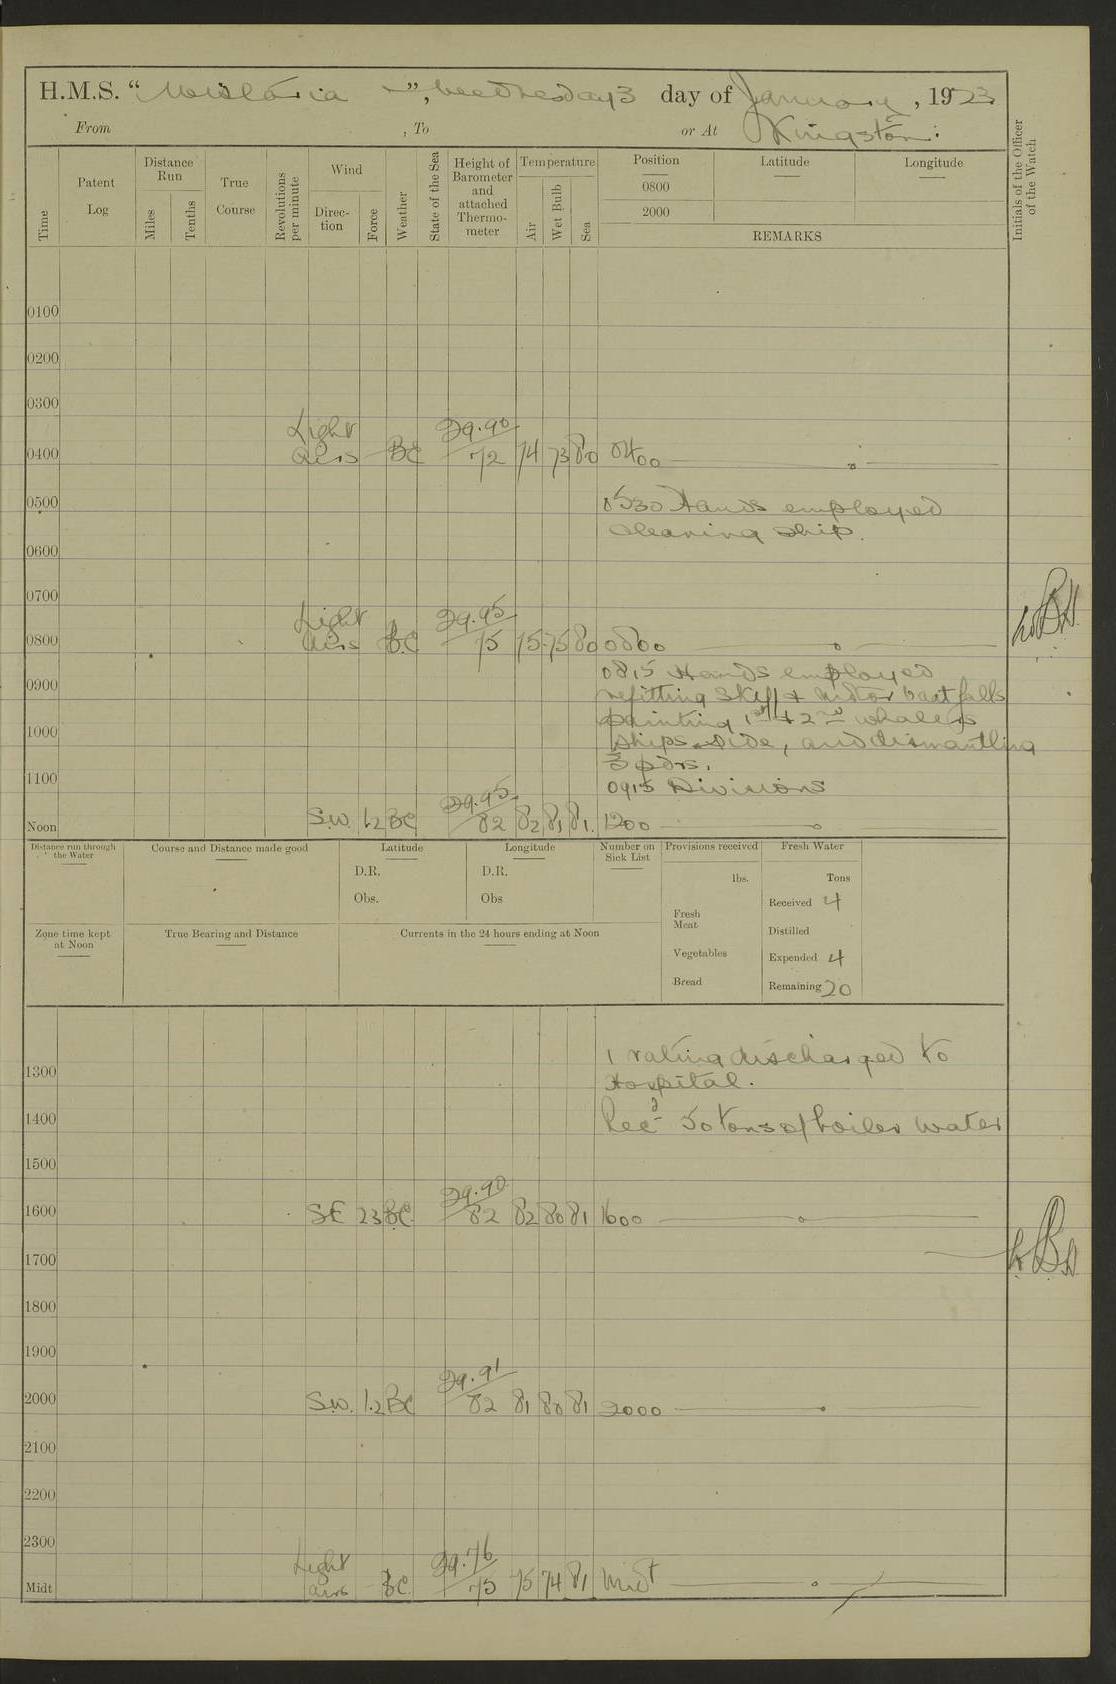 H.M.S. "Wistaria", Wednesday 3 day of January, 1923
From , To or At Kingston:
Time
Patent Log
Distance Run
Miles
Tenths
True Course
Revolutions per minute
Wind
Direction
Force
Weather
State of the Sea
Height of Barometer and attached Thermometer
Temperature
Air
Wet Bulb
Sea
Position
Latitude
Longitude
0800
2000
REMARKS
Initials of the Officer of the Watch
0100
0200
0300
Light 29.90
0400 airs BC 72 74 73 80 0400
0500 0530 Hands employed
cleaning ship.
0600
0700
Light 29.95
0800 airs BC 75 75 75 80 0800
0815 Hands employed
0900 refitting skiff & motor boat falls
painting 1st & 2nd whalers
1000 ships side, and dismantling
3 pdrs.
1100 0915 Divisions
29.95
Noon S.W. 1.2 BC 82 82 81 81. 1200
Distance run through the Water
Course and Distance made good
Latitude
D.R.
Obs.
Longitude
D.R.
Obs
Number on Sick List
Provisions received
lbs.
Fresh Meat
Vegetables
Bread
Fresh Water
Tons
Received 4
Distilled
Expended 4
Remaining 20
Zone time kept at Noon
True Bearing and Distance
Currents in the 24 hours ending at Noon
1 rating discharged to
1300 Hospital.
1400 Recd 50 tons of boiler water
1500
29.90
1600 SE 23 BC. 82 82 80 81 1600
1700
1800
1900
29.91
2000 S.W. 1.2 BC 82 81 80 81 2000
2100
2200
2300
Light 29.76
Midt airs BC. 75 75 74 81 Midt